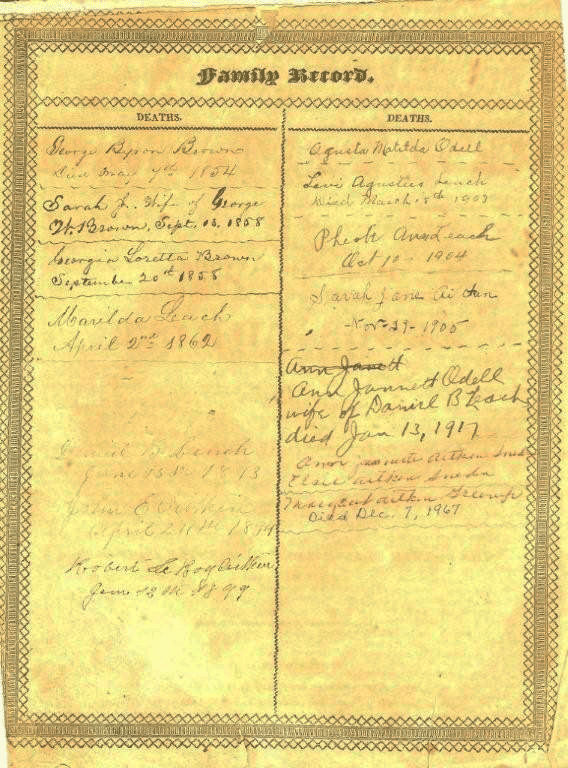 Family Record.
DEATHS.
George Byron Brown
Died May 7th 1854
Sarah J. Wife of George
W. Brown, Sept. 13. 1858
Georgia Loretta Brown
September 20th 1858
Marilda Leach
April 2nd 1862
Daniel B. Leach
June
Aitkin
April
Robert LeRoy Aitken
June 12th
DEATHS.
Agusta Matilda Odell
Levi Agustus Leach
Died March 8th
Pheobe Ann Leach
Oct 10 - 1904
Sarah Jane Aitkan
-Nov-29-1905
Ann Janett
Ann Jannett Odell
wife of Daniel B Leach
died Jan 13, 1917
Aitken
Elsie Aitken
Margaret Aitken
Died Dec. 7, 1967